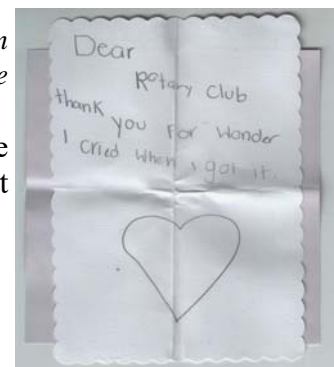 n
e
Dear
Rotary Club
e
thank you For Wonder
t
I Cried When i got it.